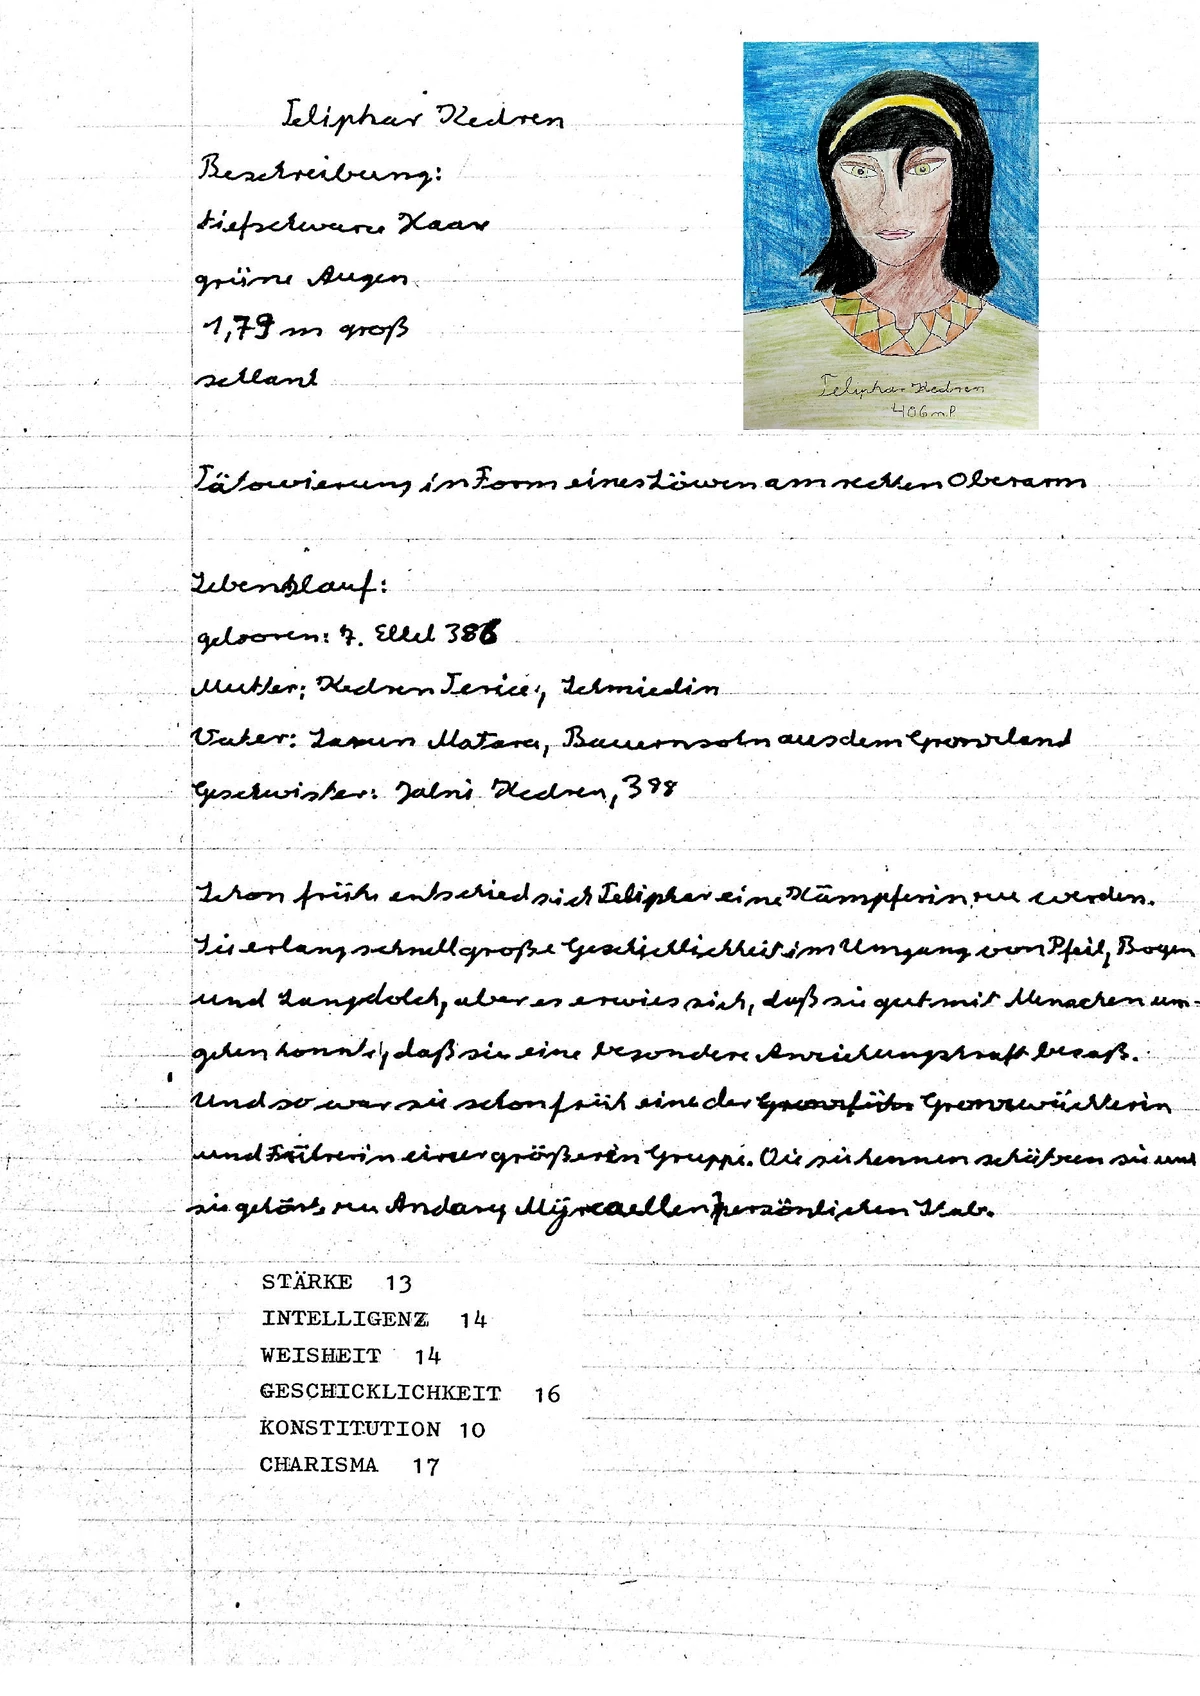 Teliphar Kedren
Beschreibung:
tiefschwarze Haar
grüne Augen
1,79 m groß
schlank
Teliphar Kedren
406 n.P
Tätowierung in Form eines Löwen am rechten Oberarm
Lebenslauf:
geboren: 7. Ellel 386
Mutter: Kedren Terice, Schmiedin
Vater: Matara, Bauernsohn aus dem Grenzland
Geschwister: Jalni Kedren, 388
Schon früh entschied sich Teliphar eine Kämpferin zu werden.
Sie erlang schnell große Geschicklichkeit im Umgang von Pfeil, Bogen
und Langdolch, aber es erwies sich, daß sie gut mit Menschen um-
gehen konnte, daß sie eine besondere Anziehungskraft besaß.
Und so war sie schon früh eine der Grenzwächterin
und Führerin einer größeren Gruppe. Die sie kennen schätzen sie und
sie gehört zu Andary persönlichen Stab.
STÄRKE 13
INTELLIGENZ 14
WEISHEIT 14
GESCHICKLICHKEIT 16
KONSTITUTION 10
CHARISMA 17